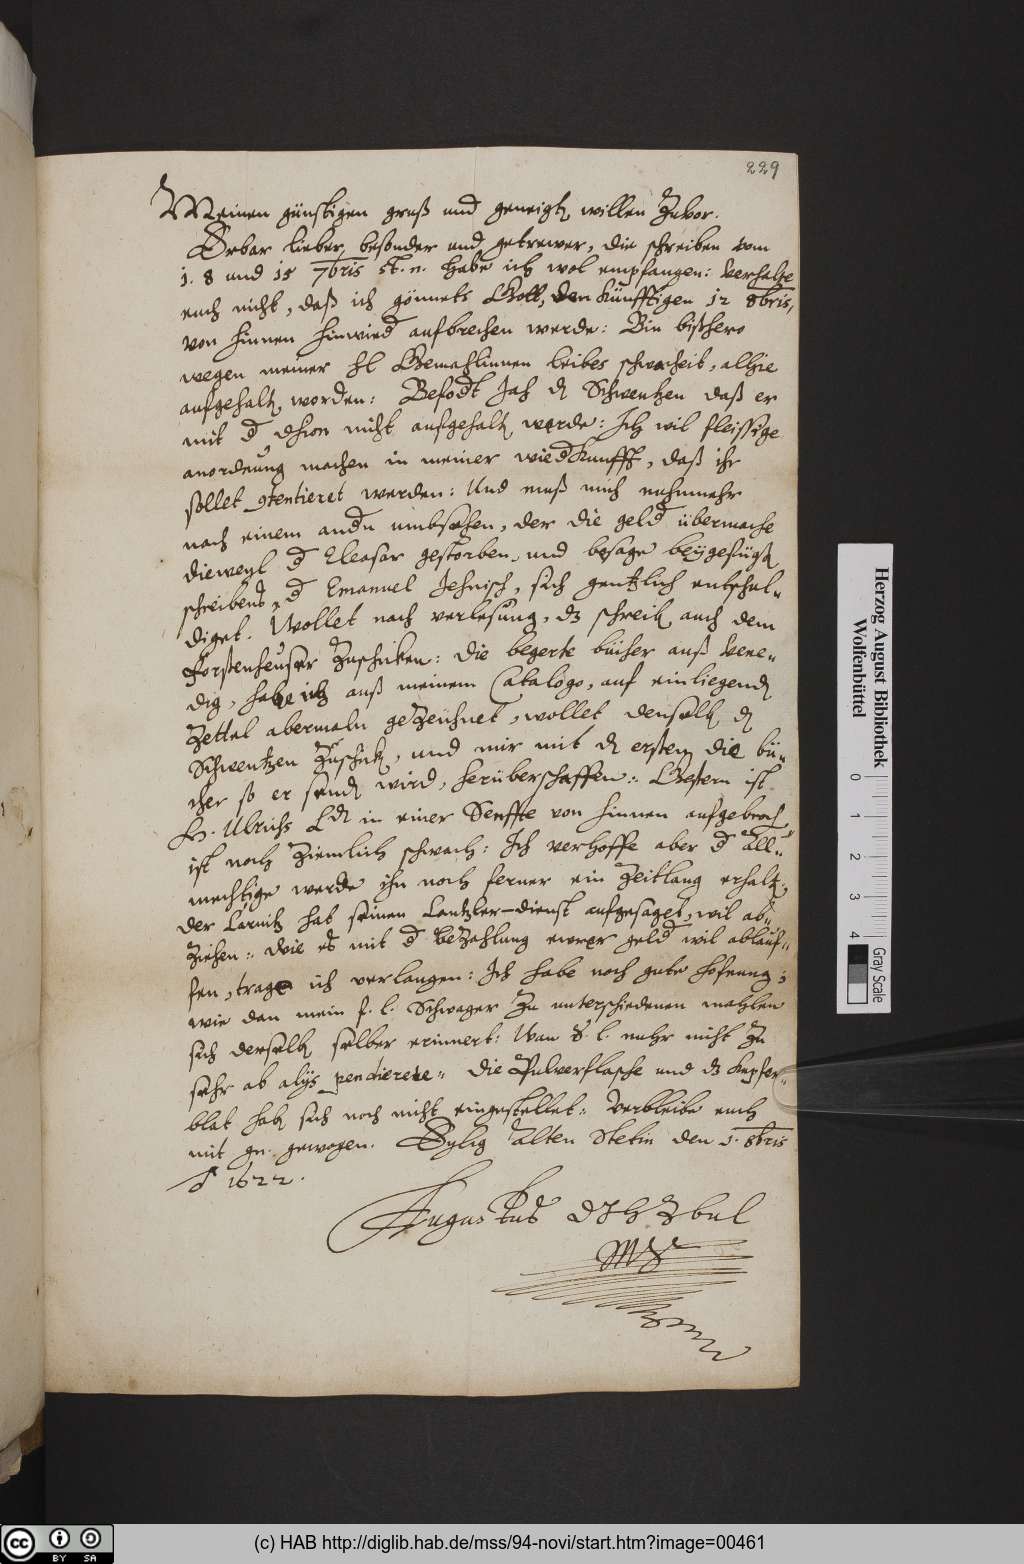 229
Meinen günstigen gruß und geneigtꝫ willen Zuvor.
Erbar lieber, besonder und getrewer, die schreiben vom
1. 8 und 15 7bris st. n. habe ich wol empfangen: Verhalte
euch nicht, daß ich gönnets Gott, den künfftigen 12 8bris,
von hinnen hinwied aufbrechen werde: Bin bißhero
wegen meiner hl Gemahlinnen leibes schwacheit, alhie
aufgehaltꝫ worden: daß er
mit d nicht aufgehaltꝫ werde: Ich wil fleissige
anordnung machen in meiner wiedkunfft, daß ihr
sollet 9tentieret werden: Und muß mich nuhnmehr
nach einem andn umbsehen, der die geld übermache
dieweyl d Eleasar gestorben, und besage beygefügtꝫ
schreibens, d Emanuel Jehnisch, sich gentzlich entschul-
diget. Wollet nach verlesung, dz schreibꝫ auch dem
Forstenheuser Zuschicken: die begerte bücher auß Vene-
dig, habe ich auß meinem Catalogo, auf einliegendꝫ
Zettel abermaln geZeichnet, wollet denselbꝫ dꝫ
Schwentzen Zuschickꝫ, und mir mit dꝫ ersten die bü-
cher so er sendꝫ wird, herüberschaffen: Gestern ist
H. Ulrichs Ldꝫ in einer Senffte von hinnen aufgebrochꝫ
ist noch Ziemlich schwach: Ich verhoffe aber d All-
mechtige werde ihn noch ferner ein Zeitlang erhaltꝫ;
der hat seinen Cantzler-dienst aufgesaget, wil ab-
Ziehen: Wie es mit d beZahlung ewrer geld wil ablauf-
fen, trage ich verlangen: Ich habe noch gute hofnung;
wie dan mein f. l. Schwager Zu unterschiedenen mahlen
sich derselbꝫ selber erinnert: Wan S. l. nuhr nicht Zu
sehr ab alijs pendierete: die Pulverflasche und dz kupfer-
blat habꝫ sich noch nicht eingestellet: Verbleibe euch
mit gn. gewogen. Eylig Alten Stetin den 1. 8bris
A 1622.
Augustus DJHZbul
Mp
Herzog August Bibliothek
Wolfenbüttel
0 1 2 3 4
Gray Scale
cc BY SA
(c) HAB http://diglib.hab.de/mss/94-novi/start.htm?image=00461